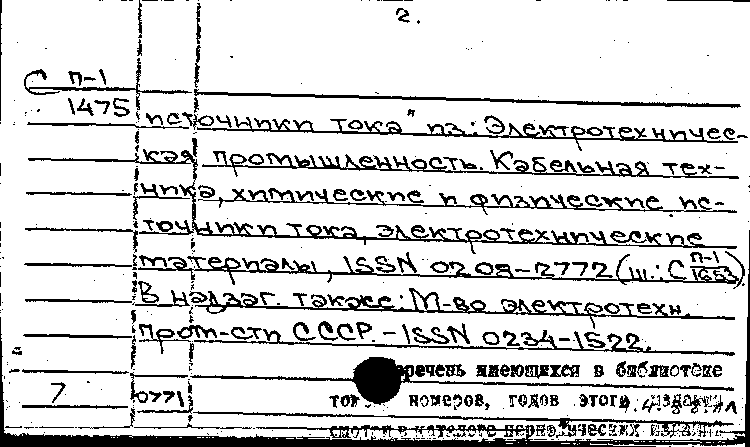 2.
С П-1
1475
источники тока" из: Электротехничес-
кая промышленность. Кабельная тех-
ника, химические и физические ис-
точники тока, электротехнические
материалы, ISSN 0208-2772 (ш.: С П-1/1653)
В надзаг. также: М-во электротехн.
пром-сти СССР. - ISSN 0234-1522.
речень имеющихся в библиотеке
7 0771 номеров, годов этого издания
смотри в каталоге периодических изданий